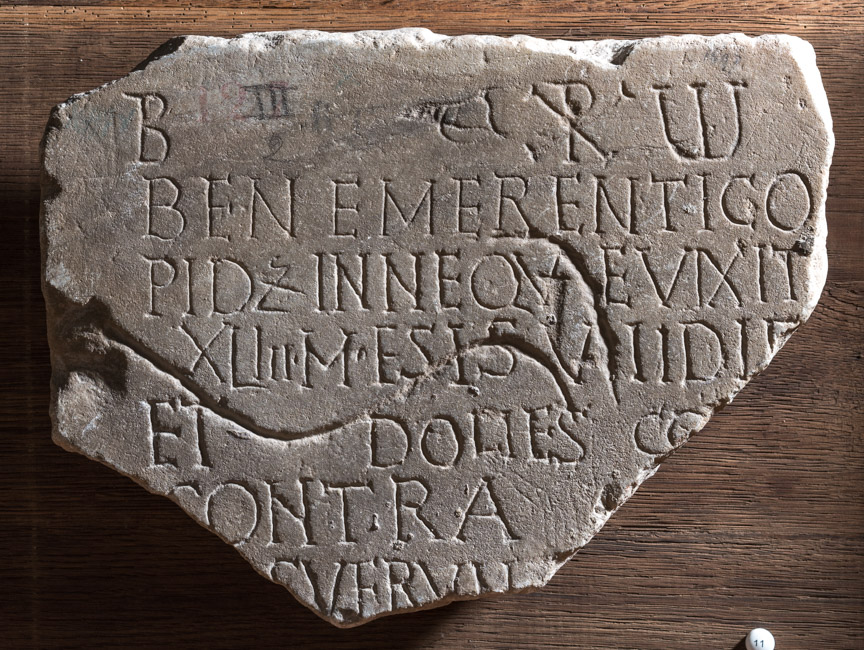 B α ☧ ω
BENEMERENTI·CO
PIDZINNEQVEVIXIT
XLIII·M·ESIS VIIDIE
ET DOLIES CO
CONT·RA
CVERVNT
11